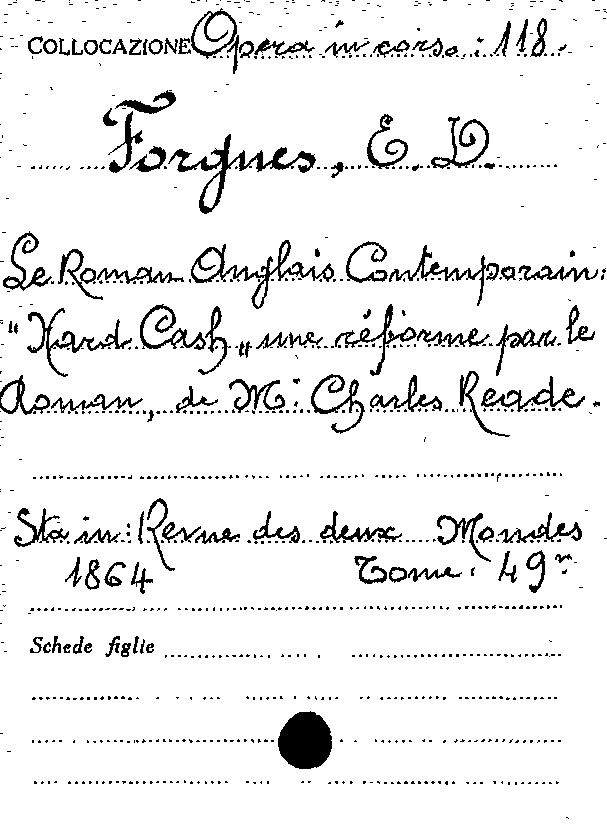 COLLOCAZIONE Opera in corso : 118.
Forgues, E. D.
Le Roman Anglais Contemporain:
"Hard Cash„ une réforme par le
Roman, de Mr: Charles Reade.
Sta in: Revue des deux Mondes
1864 Tome. 49me
Schede figlie